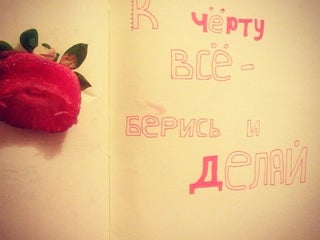 К чёрту
всё -
берись и
делай